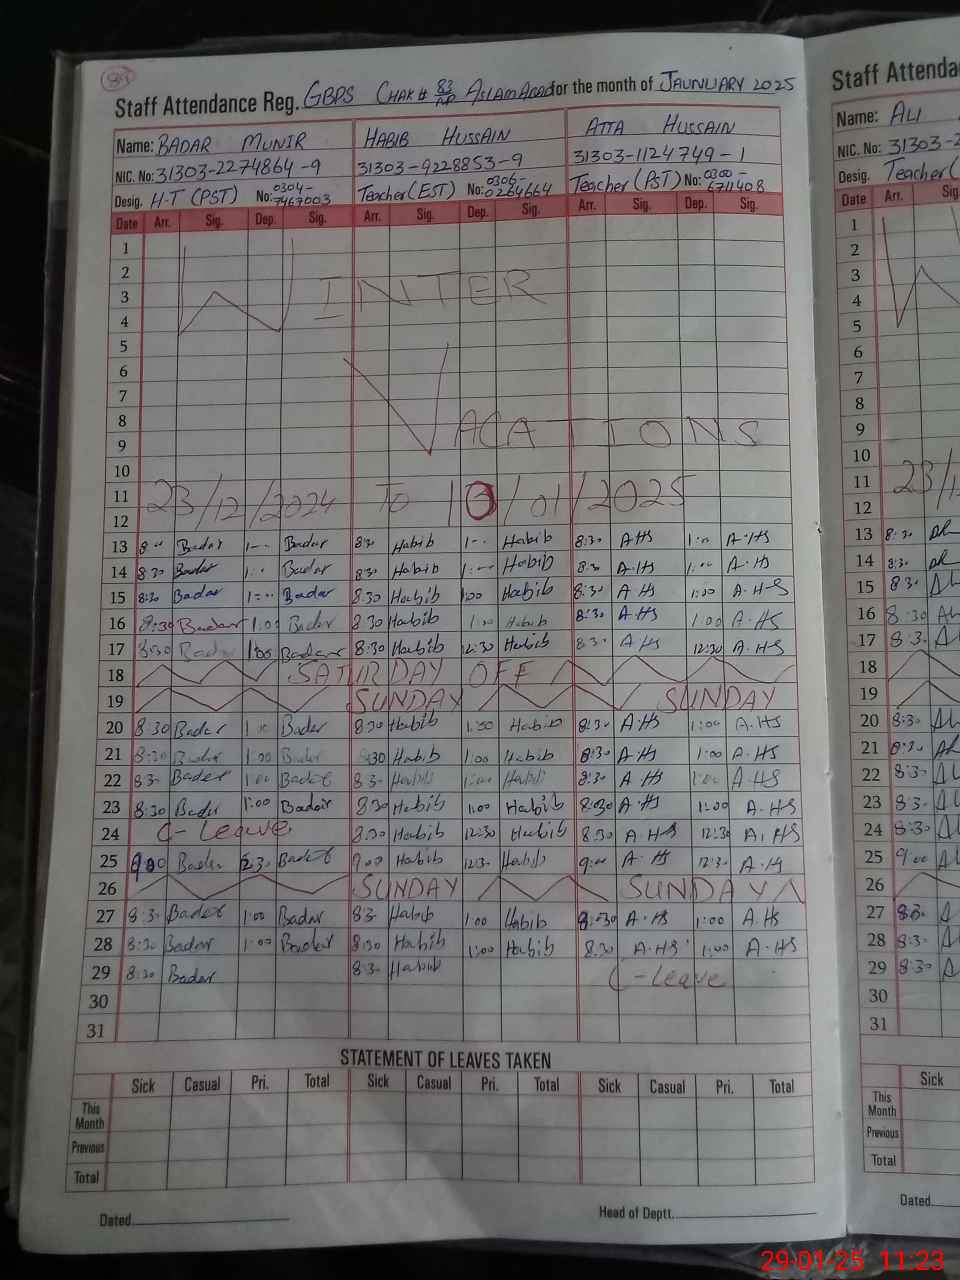 84
Staff Attendance Reg. GBPS CHAK # 83/NP ASLAM ABAD for the month of JAUNUARY 2025
Name: BADAR MUNIR HABIB HUSSAIN ATTA HUSSAIN
NIC. No: 31303-2274864-9 31303-9228853-9 31303-1124749-1
Desig. H-T (PST) No: 0304-7467003 Teacher (EST) No: 0306-0284664 Teacher (PST) No: 0300-6711408
Date Arr. Sig. Dep. Sig. Arr. Sig. Dep. Sig. Arr. Sig. Dep. Sig.
1
2
3 WINTER
4
5
6
7
8 VACATIONS
9
10
11 23/12/2024 To 10/01/2025
12
13 8:30 Badar 1:00 Badar 8:30 Habib 1:00 Habib 8:30 A.HS 1:00 A.HS
14 8:30 Badar 1:00 Badar 8:30 Habib 1:00 Habib 8:30 A.HS 1:00 A.HS
15 8:30 Badar 1:00 Badar 8:30 Habib 1:00 Habib 8:30 A.HS 1:00 A.HS
16 8:30 Badar 1:00 Badar 8:30 Habib 1:00 Habib 8:30 A.HS 1:00 A.HS
17 8:30 Badar 1:00 Badar 8:30 Habib 12:30 Habib 8:30 A.HS 12:30 A.HS
18 SATURDAY OFF
19 SUNDAY SUNDAY
20 8:30 Badar 1:00 Badar 8:30 Habib 1:00 Habib 8:30 A.HS 1:00 A.HS
21 8:30 Badar 1:00 Badar 8:30 Habib 1:00 Habib 8:30 A.HS 1:00 A.HS
22 8:30 Badar 1:00 Badar 8:30 Habib 1:00 Habib 8:30 A.HS 1:00 A.HS
23 8:30 Badar 1:00 Badar 8:30 Habib 1:00 Habib 8:30 A.HS 1:00 A.HS
24 C-Leave 8:30 Habib 12:30 Habib 8:30 A.HS 12:30 A.HS
25 9:00 Badar 12:30 Badar 9:00 Habib 12:30 Habib 9:00 A.HS 12:30 A.H
26 SUNDAY SUNDAY
27 8:30 Badar 1:00 Badar 8:30 Habib 1:00 Habib 8:30 A.HS 1:00 A.HS
28 8:30 Badar 1:00 Badar 8:30 Habib 1:00 Habib 8:30 A.HS 1:00 A.HS
29 8:30 Badar 8:30 Habib C-Leave
30
31
STATEMENT OF LEAVES TAKEN
Sick Casual Pri. Total Sick Casual Pri. Total Sick Casual Pri. Total
This Month
Previous
Total
Dated Head of Deptt.
Staff Attenda
Name: ALI
NIC. No: 31303-2
Desig. Teacher (
Date Arr. Sig
1
2
3
4
5
6
7
8
9
10
11 23/1
12
13 8:30
14 8:30
15 8:30
16 8:30
17 8:30
18
19
20 8:30
21 8:30
22 8:30
23 8:30
24 8:30
25 9:00
26
27 8:30
28 8:30
29 8:30
30
31
Sick
This Month
Previous
Total
Dated
29-01-25 11:23